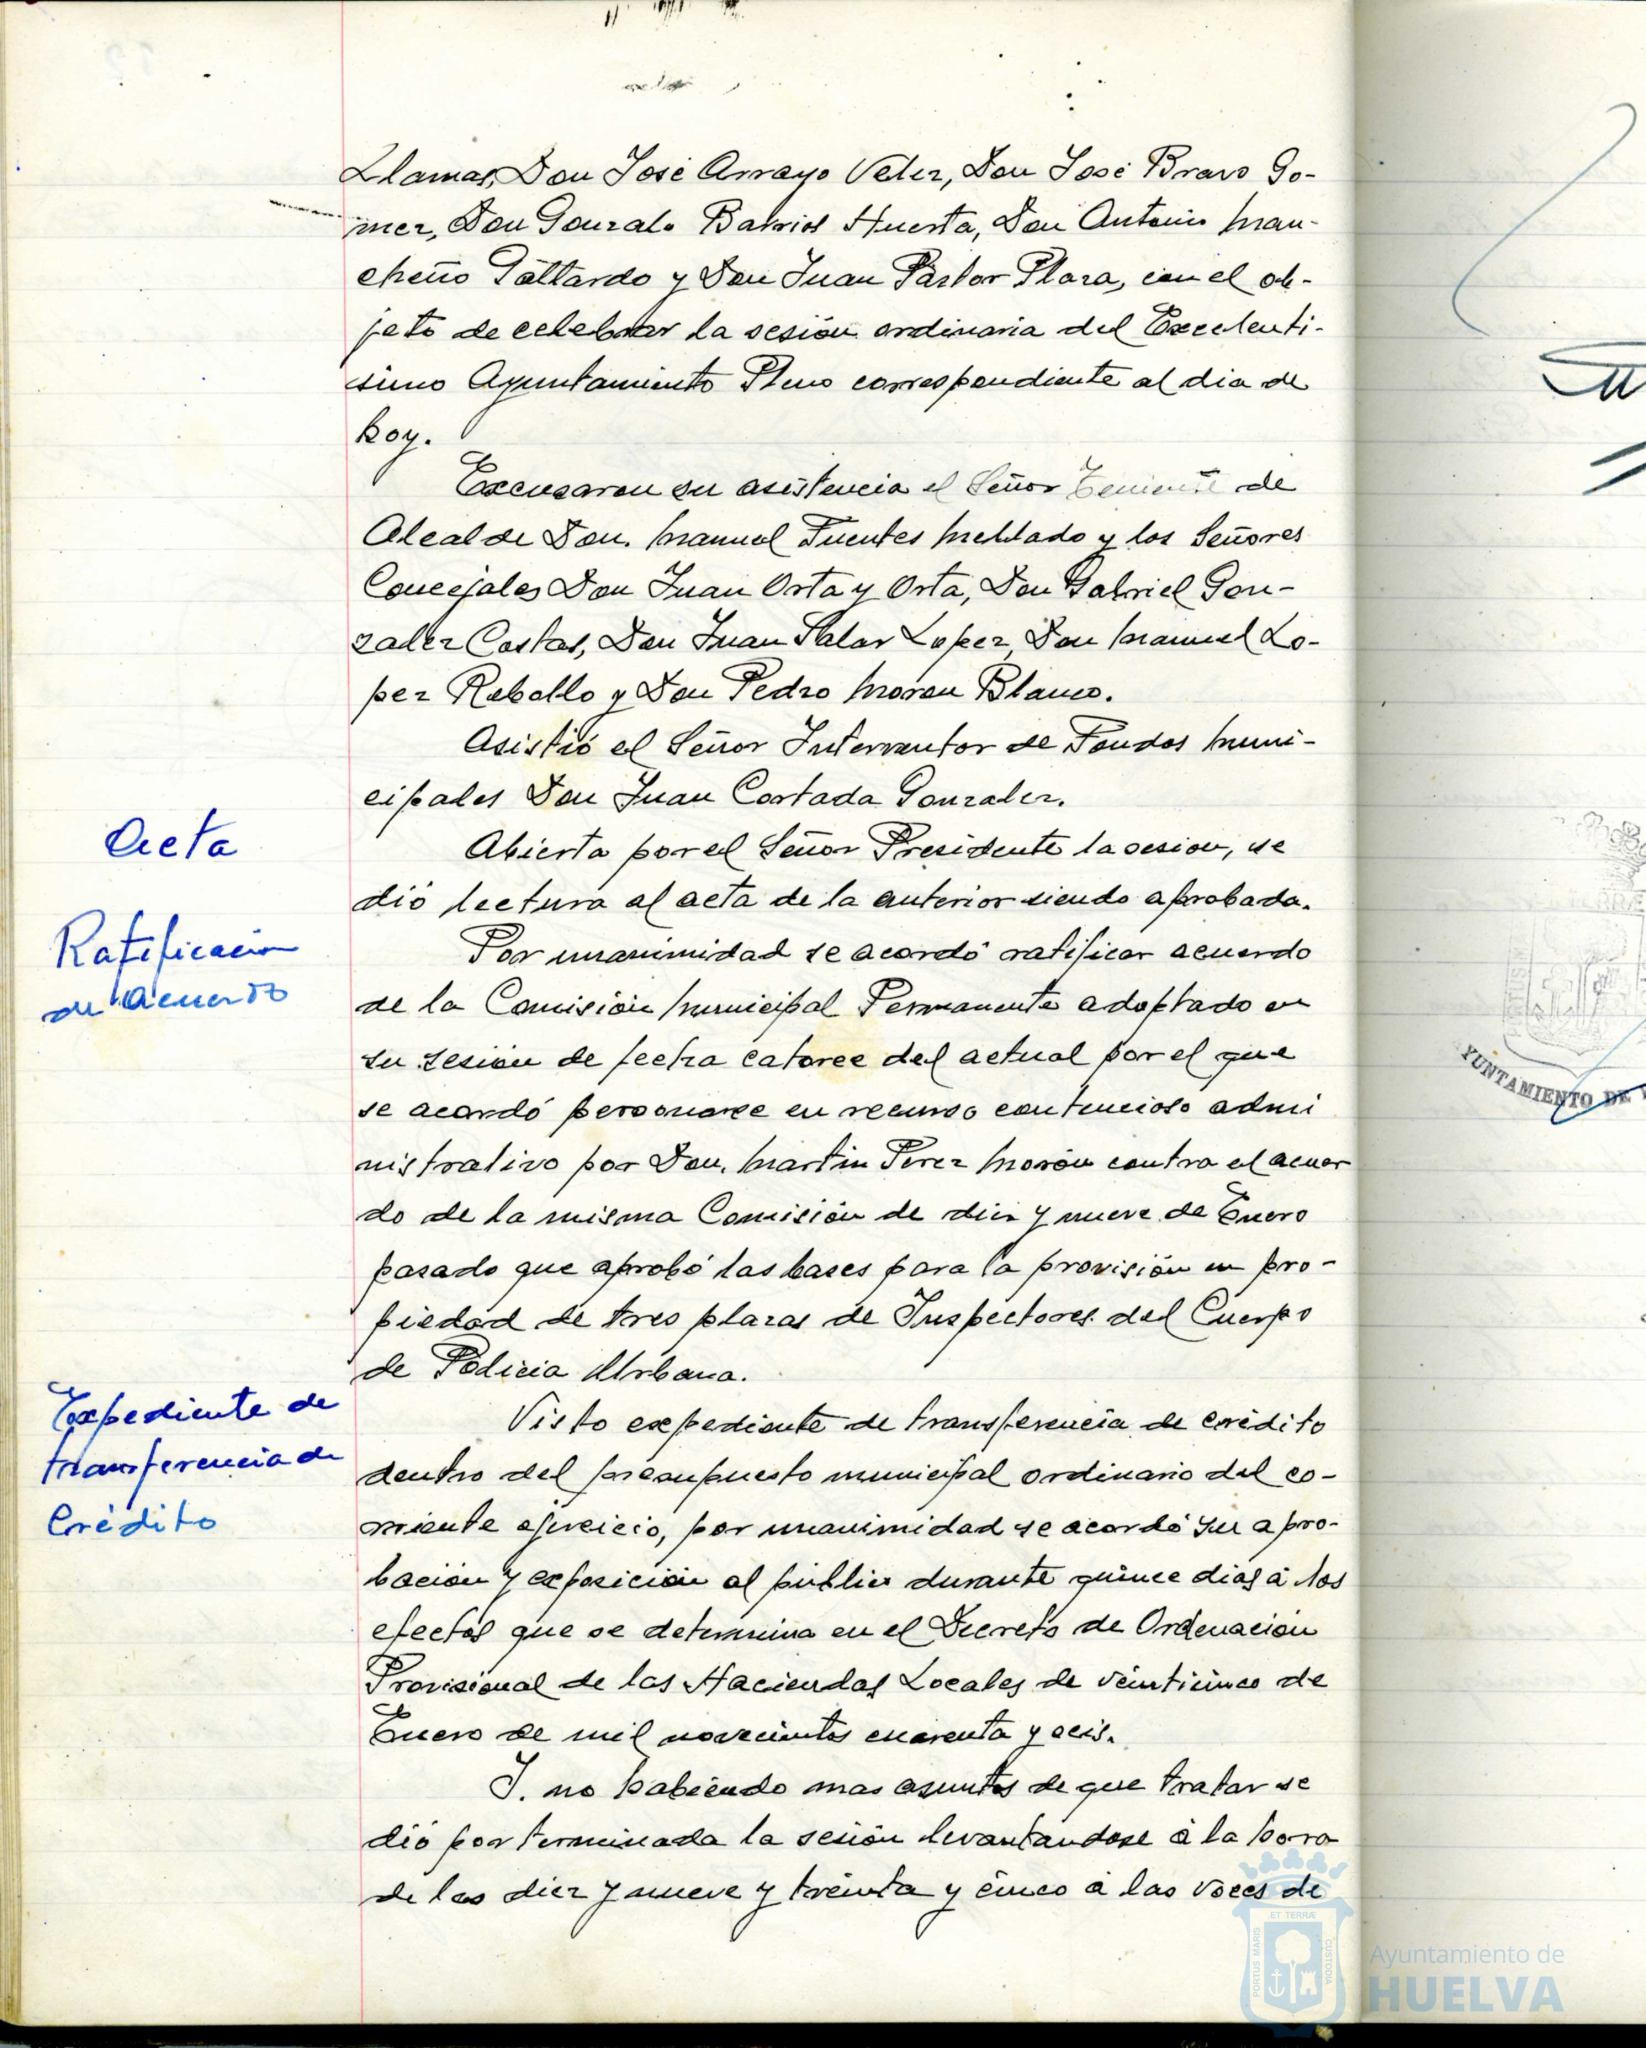 Llamas, Don José Arroyo Velez, Don José Bravo Go-
mez, Don Gonzalo Barrios Huerta, Don Antonio Man-
cheño Gallardo y Don Juan Pastor Plaza, con el ob-
jeto de celebrar la sesión ordinaria del Excelenti-
simo Ayuntamiento Pleno correspondiente al dia de
hoy.
Excusaron su asistencia el Señor Teniente de
Alcalde Don Manuel Fuentes Mellado y los Señores
Concejales Don Juan Orta y Orta, Don Gabriel Gon-
zalez Costas, Don Juan Salas Lopez, Don Manuel Lo-
pez Rebollo y Don Pedro Moron Blanco.
Asistió el Señor Interventor de Fondos Muni-
cipales Don Juan Cortada Gonzalez.
Acta
Abierta por el Señor Presidente la sesion, se
dió lectura al acta de la anterior siendo aprobada.
Ratificación
de acuerdo
Por unanimidad se acordó ratificar acuerdo
de la Comisión Municipal Permanente adoptado en
su sesión de fecha catorce del actual por el que
se acordó personarse en recurso contencioso admi
nistrativo por Don Martin Perez Morón contra el acuer
do de la misma Comisión de diez y nueve de Enero
pasado que aprobó las bases para la provisión en pro-
piedad de tres plazas de Inspectores del Cuerpo
de Policia Urbana.
Expediente de
transferencia de
Crédito
Visto expediente de transferencia de crédito
dentro del presupuesto municipal ordinario del co-
rriente ejercicio, por unanimidad se acordó su apro-
bación y exposición al público durante quince dias á los
efectos que se determina en el Decreto de Ordenación
Provisional de las Haciendas Locales de veinticinco de
Enero de mil novecientos cuarenta y seis.
Y. no habiendo mas asuntos de que tratar se
dió por terminada la sesión levantandose á la hora
de las diez y nueve y treinta y cinco á las voces de
YUNTAMIENTO DE
PORTUS MARIS ET TERRÆ CUSTODIA
Ayuntamiento de
HUELVA